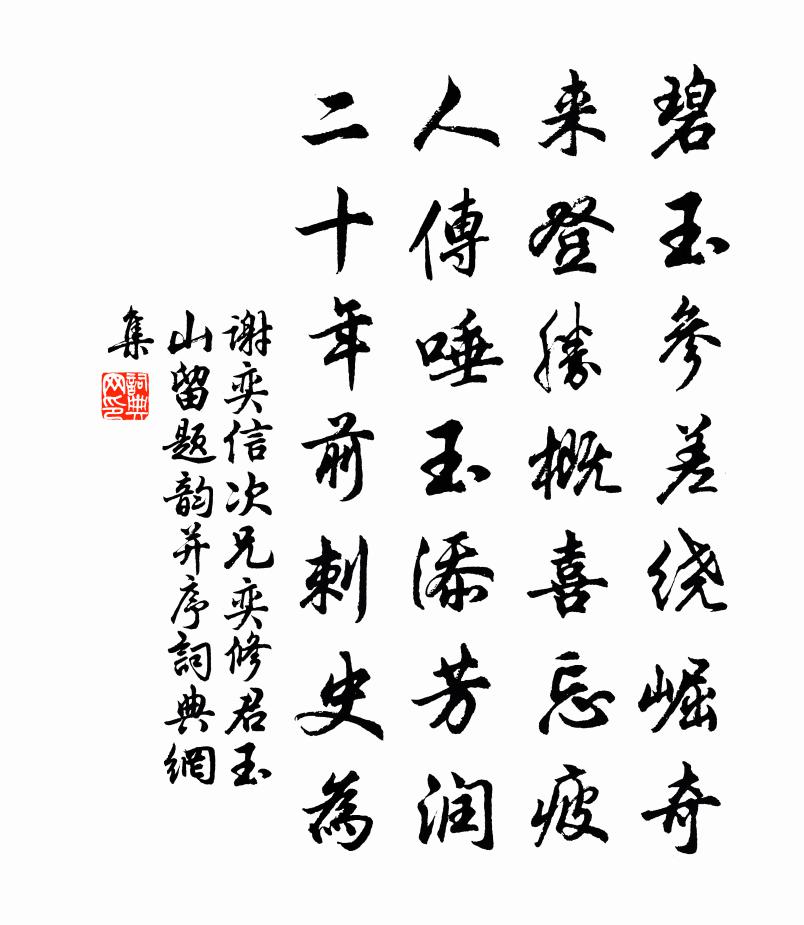 碧玉參差绕崛奇
来登勝概喜忘疲
人傳唾玉添芳润
二十年前刺史為
謝奕信次兄奕修君玉
山留题韵并序詞典網
集
詞典網印